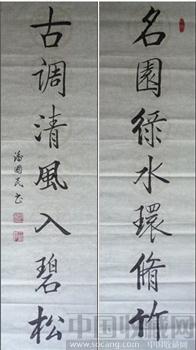 名園綠水環脩竹
古調清風入碧松
潘國民书
中国收藏网
www.socang.com